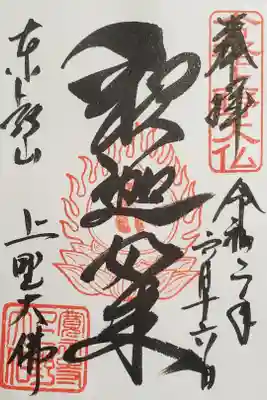 奉拝
令和二年
六月十六日
釈迦如来
東叡山
上野大佛